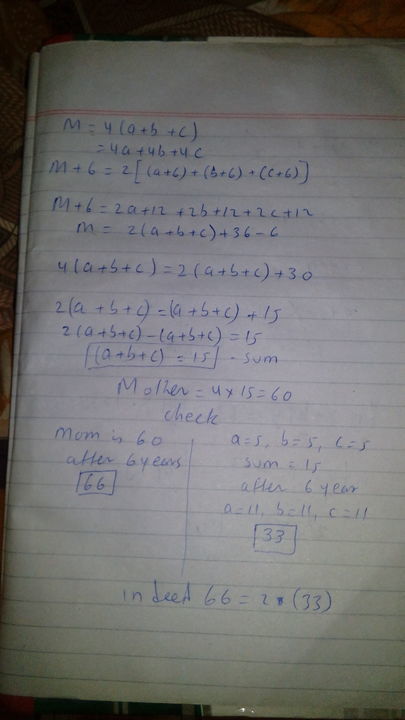 M = 4(a+b+c)
= 4a+4b+4c
M+6 = 2[(a+6)+(b+6)+(c+6)]
M+6 = 2a+12+2b+12+2c+12
M = 2(a+b+c)+36-6
4(a+b+c)=2(a+b+c)+30
2(a+b+c)=(a+b+c)+15
2(a+b+c)-(a+b+c)=15
(a+b+c)=15 - sum
Mother = 4x15=60
check
Mom is 60
after 6 years
66
a=5, b=5, c=5
sum = 15
after 6 year
a=11, b=11, c=11
33
indeed 66 = 2*(33)